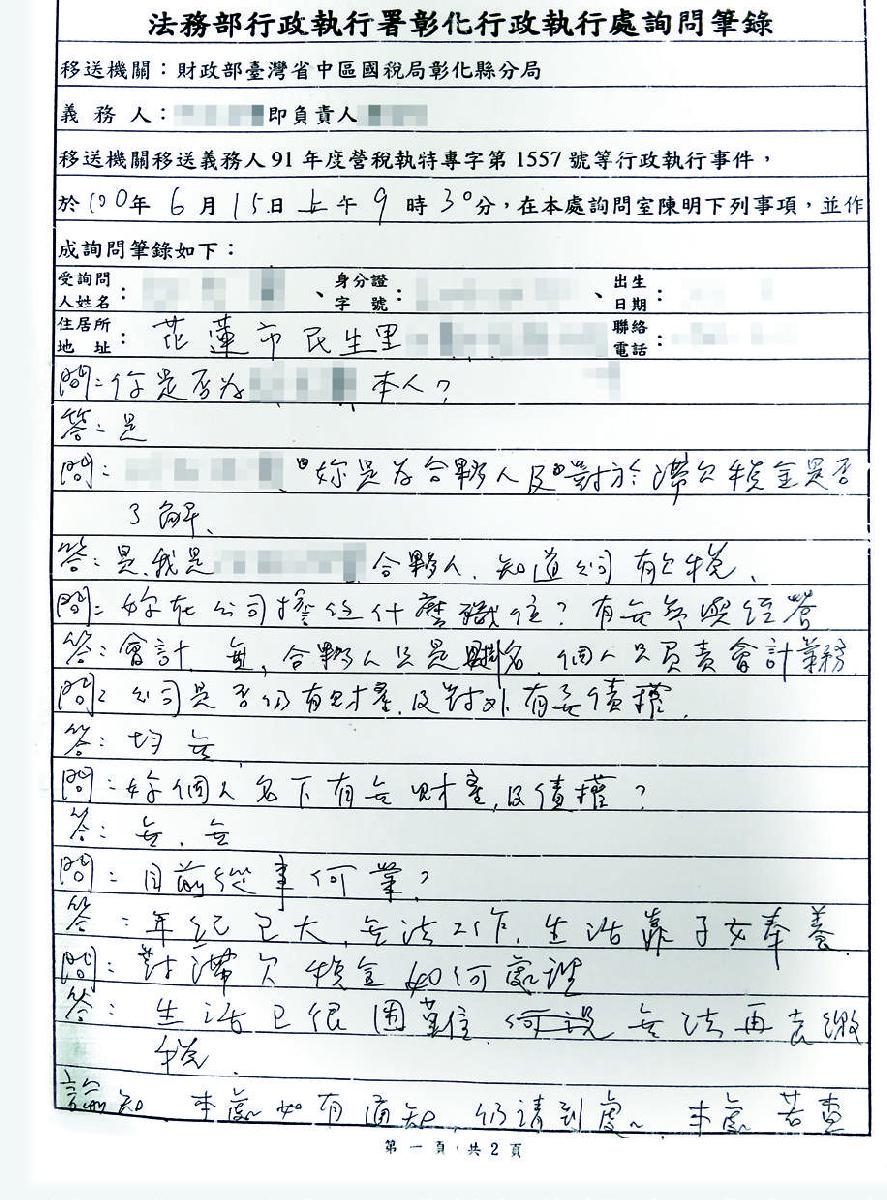 法務部行政執行署彰化行政執行處詢問筆錄
移送機關：財政部臺灣省中區國稅局彰化縣分局
義務人：即負責人
移送機關移送義務人91年度營稅執特專字第1557號等行政執行事件，
於100年6月15日上午9時30分，在本處詢問室陳明下列事項，並作
成詢問筆錄如下：
受詢問人姓名：、身分證字號：、出生日期：
住居所地址：花蓮市民生里 聯絡電話：
問：你是否為 本人？
答：是
問： 妳是否合夥人及對於滯欠稅金是否
了解、
答：是、我是 合夥人、知道公司有欠稅、
問：妳在公司擔任什麼職位？有無參與經營
答：會計、無，合夥人只是掛名、個人只負責會計業務
問：公司是否仍有財產、及對外有無債權、
答：均無
問：妳個人名下有無財產、及債權？
答：無、無
問：目前從事何業？
答：年紀已大、無法工作、生活靠子女奉養
問：對滯欠稅金如何處理
答：生活已很困難 無法再去繳
稅、
諭知 本處如有通知、仍請到處、本處若查
第一頁，共2頁